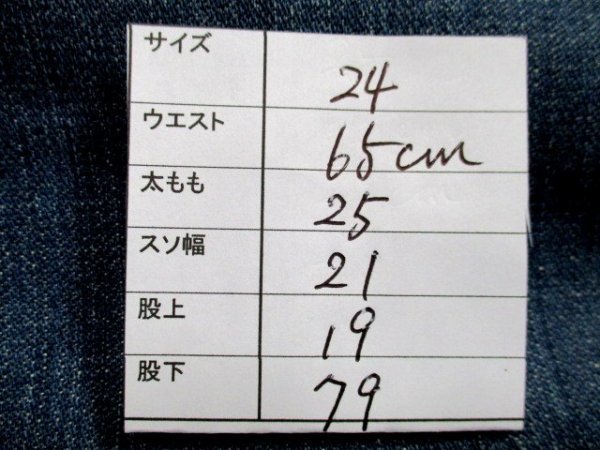 サイズ 24
ウエスト 65cm
太もも 25
スソ幅 21
股上 19
股下 79